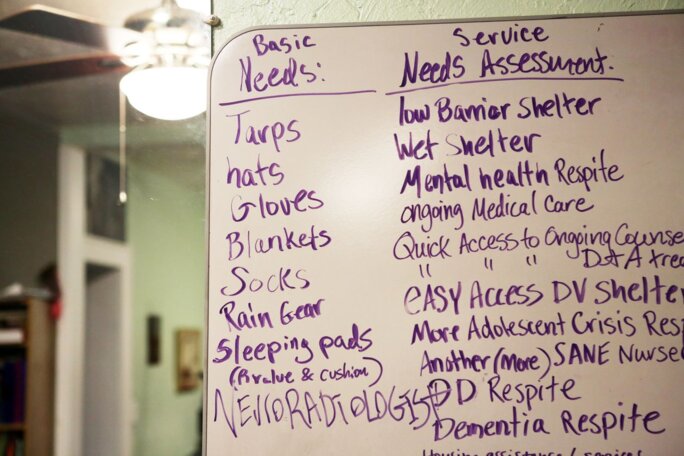 Basic
Needs:
Tarps
hats
Gloves
Blankets
Socks
Rain Gear
Sleeping pads
(Rvalue & cushion)
NEUORADIOLOGIST
Service
Needs Assessment.
low Barrior Shelter
Wet Shelter
Mental health Respite
ongoing Medical Care
Quick Access to Ongoing Counse
" " " D+A trea
eASY Access DV Shelter
More Adolescent Crisis Resp
Another (More) SANE Nurse
DD Respite
Dementia Respite